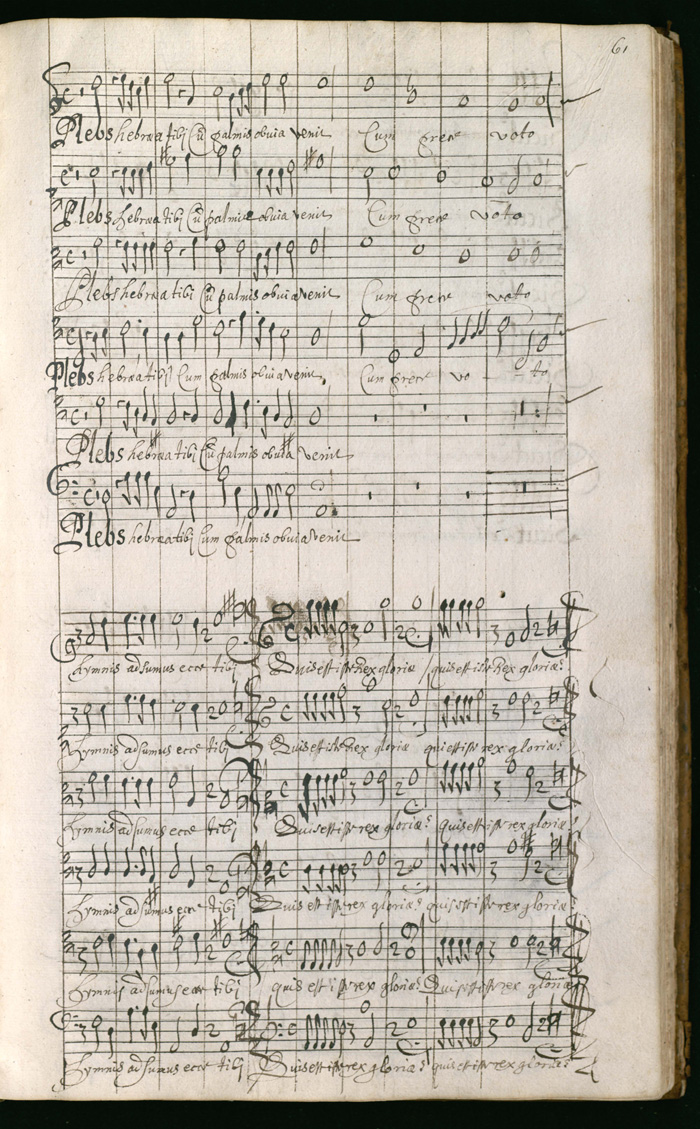 61
Plebs hebræa tibj Cū palmis obuia venit Cum prece voto
Plebs hebræa tibj Cū palmis obuia venit Cum prece voto
Plebs hebræa tibj Cū palmis obuia venit Cum prece voto
Plebs hebræa tibj Cum palmis obuia venit, Cum prece vo to
Plebs hebræa tibj Cū palmis obuia venit
Plebs hebræa tibj Cum palmis obuia venit
hymnis adsumus ecce tibj Quis est iste Rex gloriæ quis est iste Rex gloriæ?
hymnis adsumus ecce tibj Quis est iste Rex gloriæ quis est iste rex gloriæ?
hymnis adsumus ecce tibj Quis est iste rex gloriæ? quis est iste rex gloriæ?
hymnis adsumus ecce tibj Quis est iste rex gloriæ? quis est iste rex gloriæ
hymnis adsumus ecce tibj quis est iste rex gloriæ? Quis est iste rex gloriæ
hymnis adsumus ecce tibj Quis est iste rex gloriæ? quis est iste rex gloriæ?